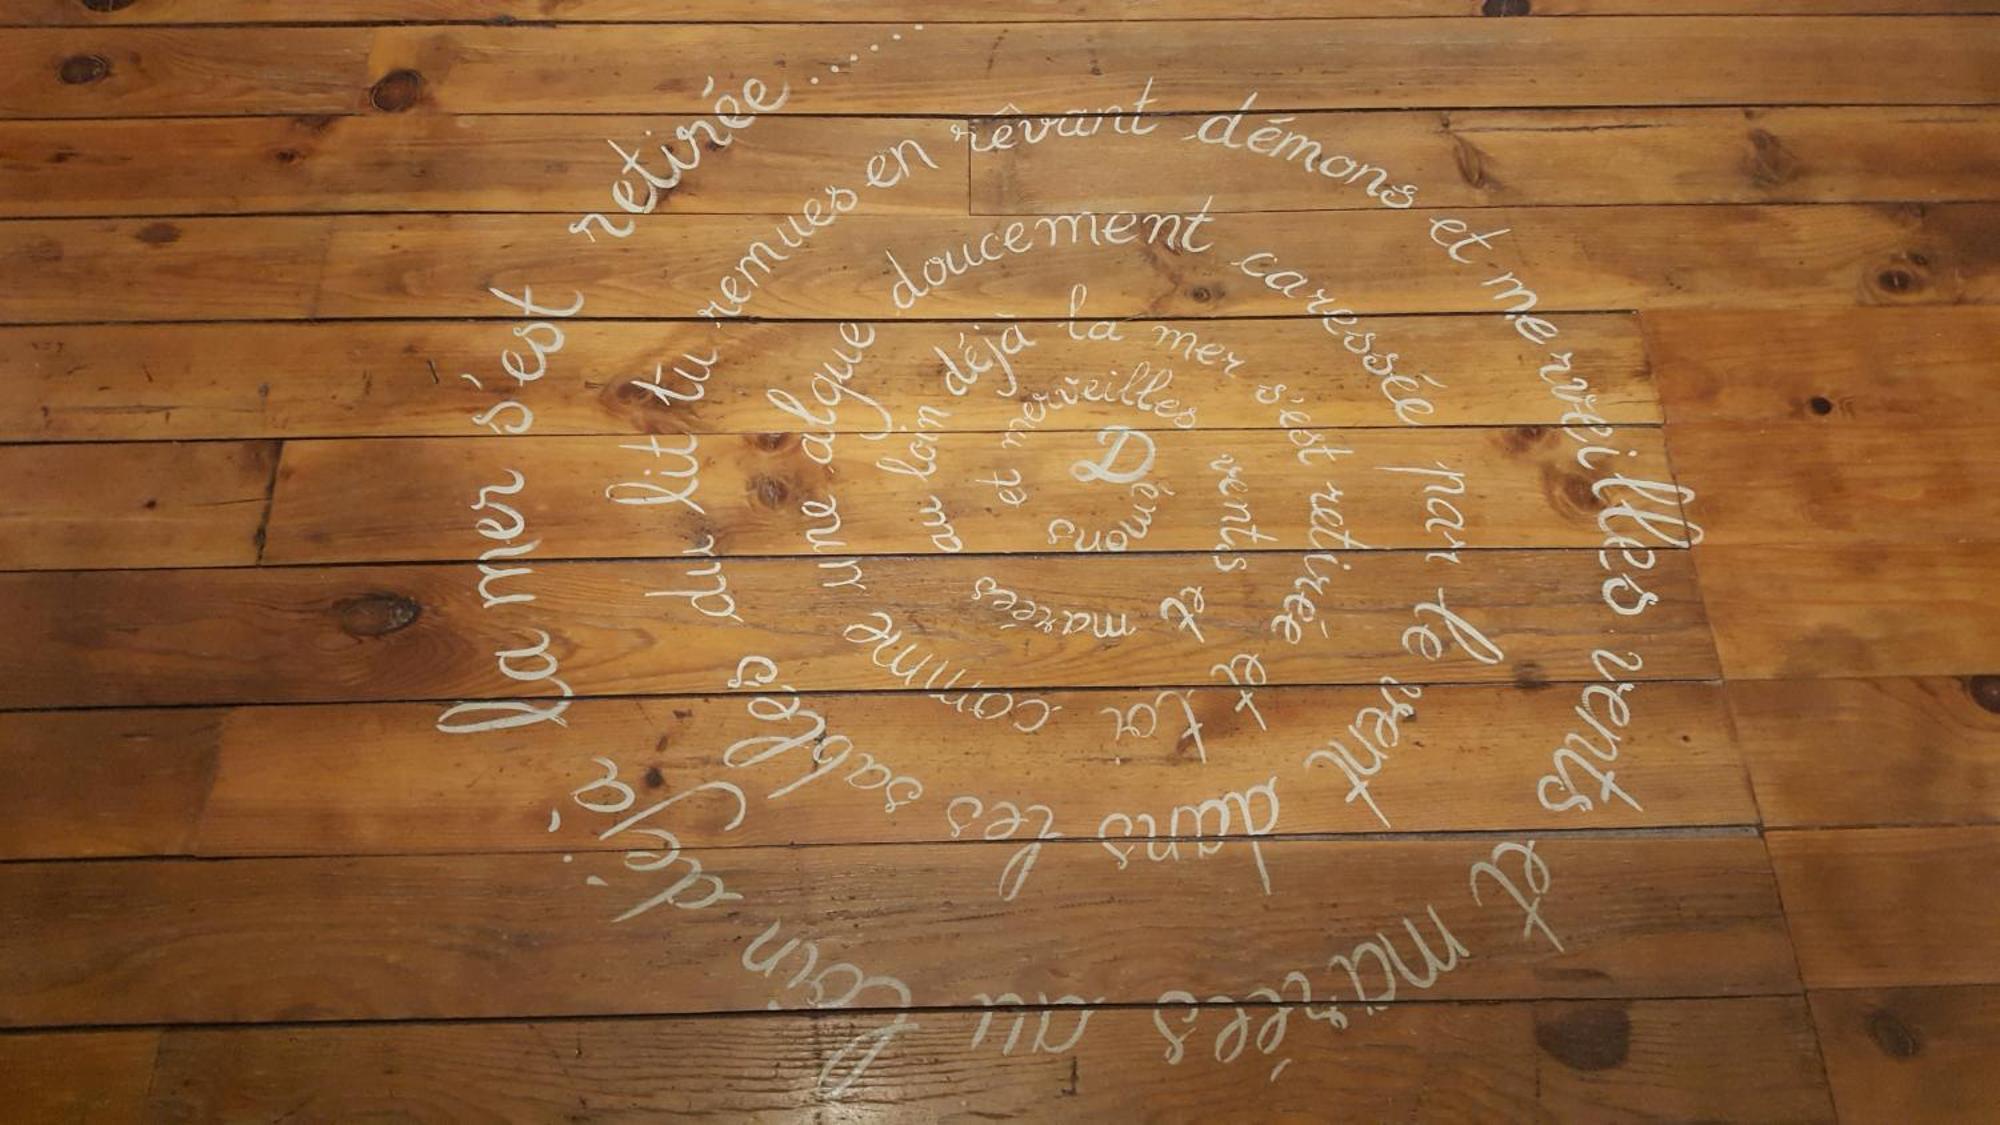 Démons et merveilles vents et marées au loin déjà la mer s'est retirée et toi comme une algue doucement caressée par le vent dans les sables du lit tu remues en rêvant démons et merveilles vents et marées au loin déjà la mer s'est retirée........